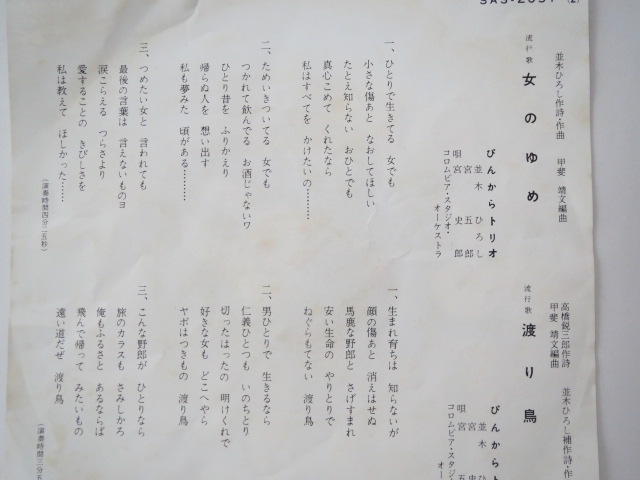 SAS-2051 (2)
並木ひろし作詩・作曲
甲斐 靖文編曲
流行歌
女のゆめ
ぴんからトリオ
並木ひろし
唄 宮 五郎
宮 史郎
コロムビア・スタジオ・
オーケストラ
一、ひとりで生きてる 女でも
小さな傷あと なおしてほしい
たとえ知らない おひとでも
真心こめて くれたなら
私はすべてを かけたいの………
二、ためいきついてる 女でも
つかれて飲んでる お酒じゃないワ
ひとり昔を ふりかえり
帰らぬ人を 想い出す
私も夢みた 頃がある………
三、つめたい女と 言われても
最後の言葉は 言えないものヨ
涙こらえる つらさより
愛することの きびしさを
私は教えて ほしかった………
(演奏時間四分二五秒)
高橋鋭三郎作詩
甲斐 靖文編曲
並木ひろし補作詩・作
流行歌
渡り鳥
ぴんからト
並木ひ
唄 宮 五
宮 史
コロムビア・スタジ
オー
一、生まれ育ちは 知らないが
顔の傷あと 消えはせぬ
馬鹿な野郎と さげすまれ
安い生命の やりとりで
ねぐらもてない 渡り鳥
二、男ひとりで 生きるなら
仁義ひとつも いのちとり
切ったはったの 明けくれで
好きな女も どこへやら
ヤボはつきもの 渡り鳥
三、こんな野郎が ひとりなら
旅のカラスも さみしかろ
俺もふるさと あるならば
飛んで帰って みたいもの
遠い道だぜ 渡り鳥
(演奏時間三分五